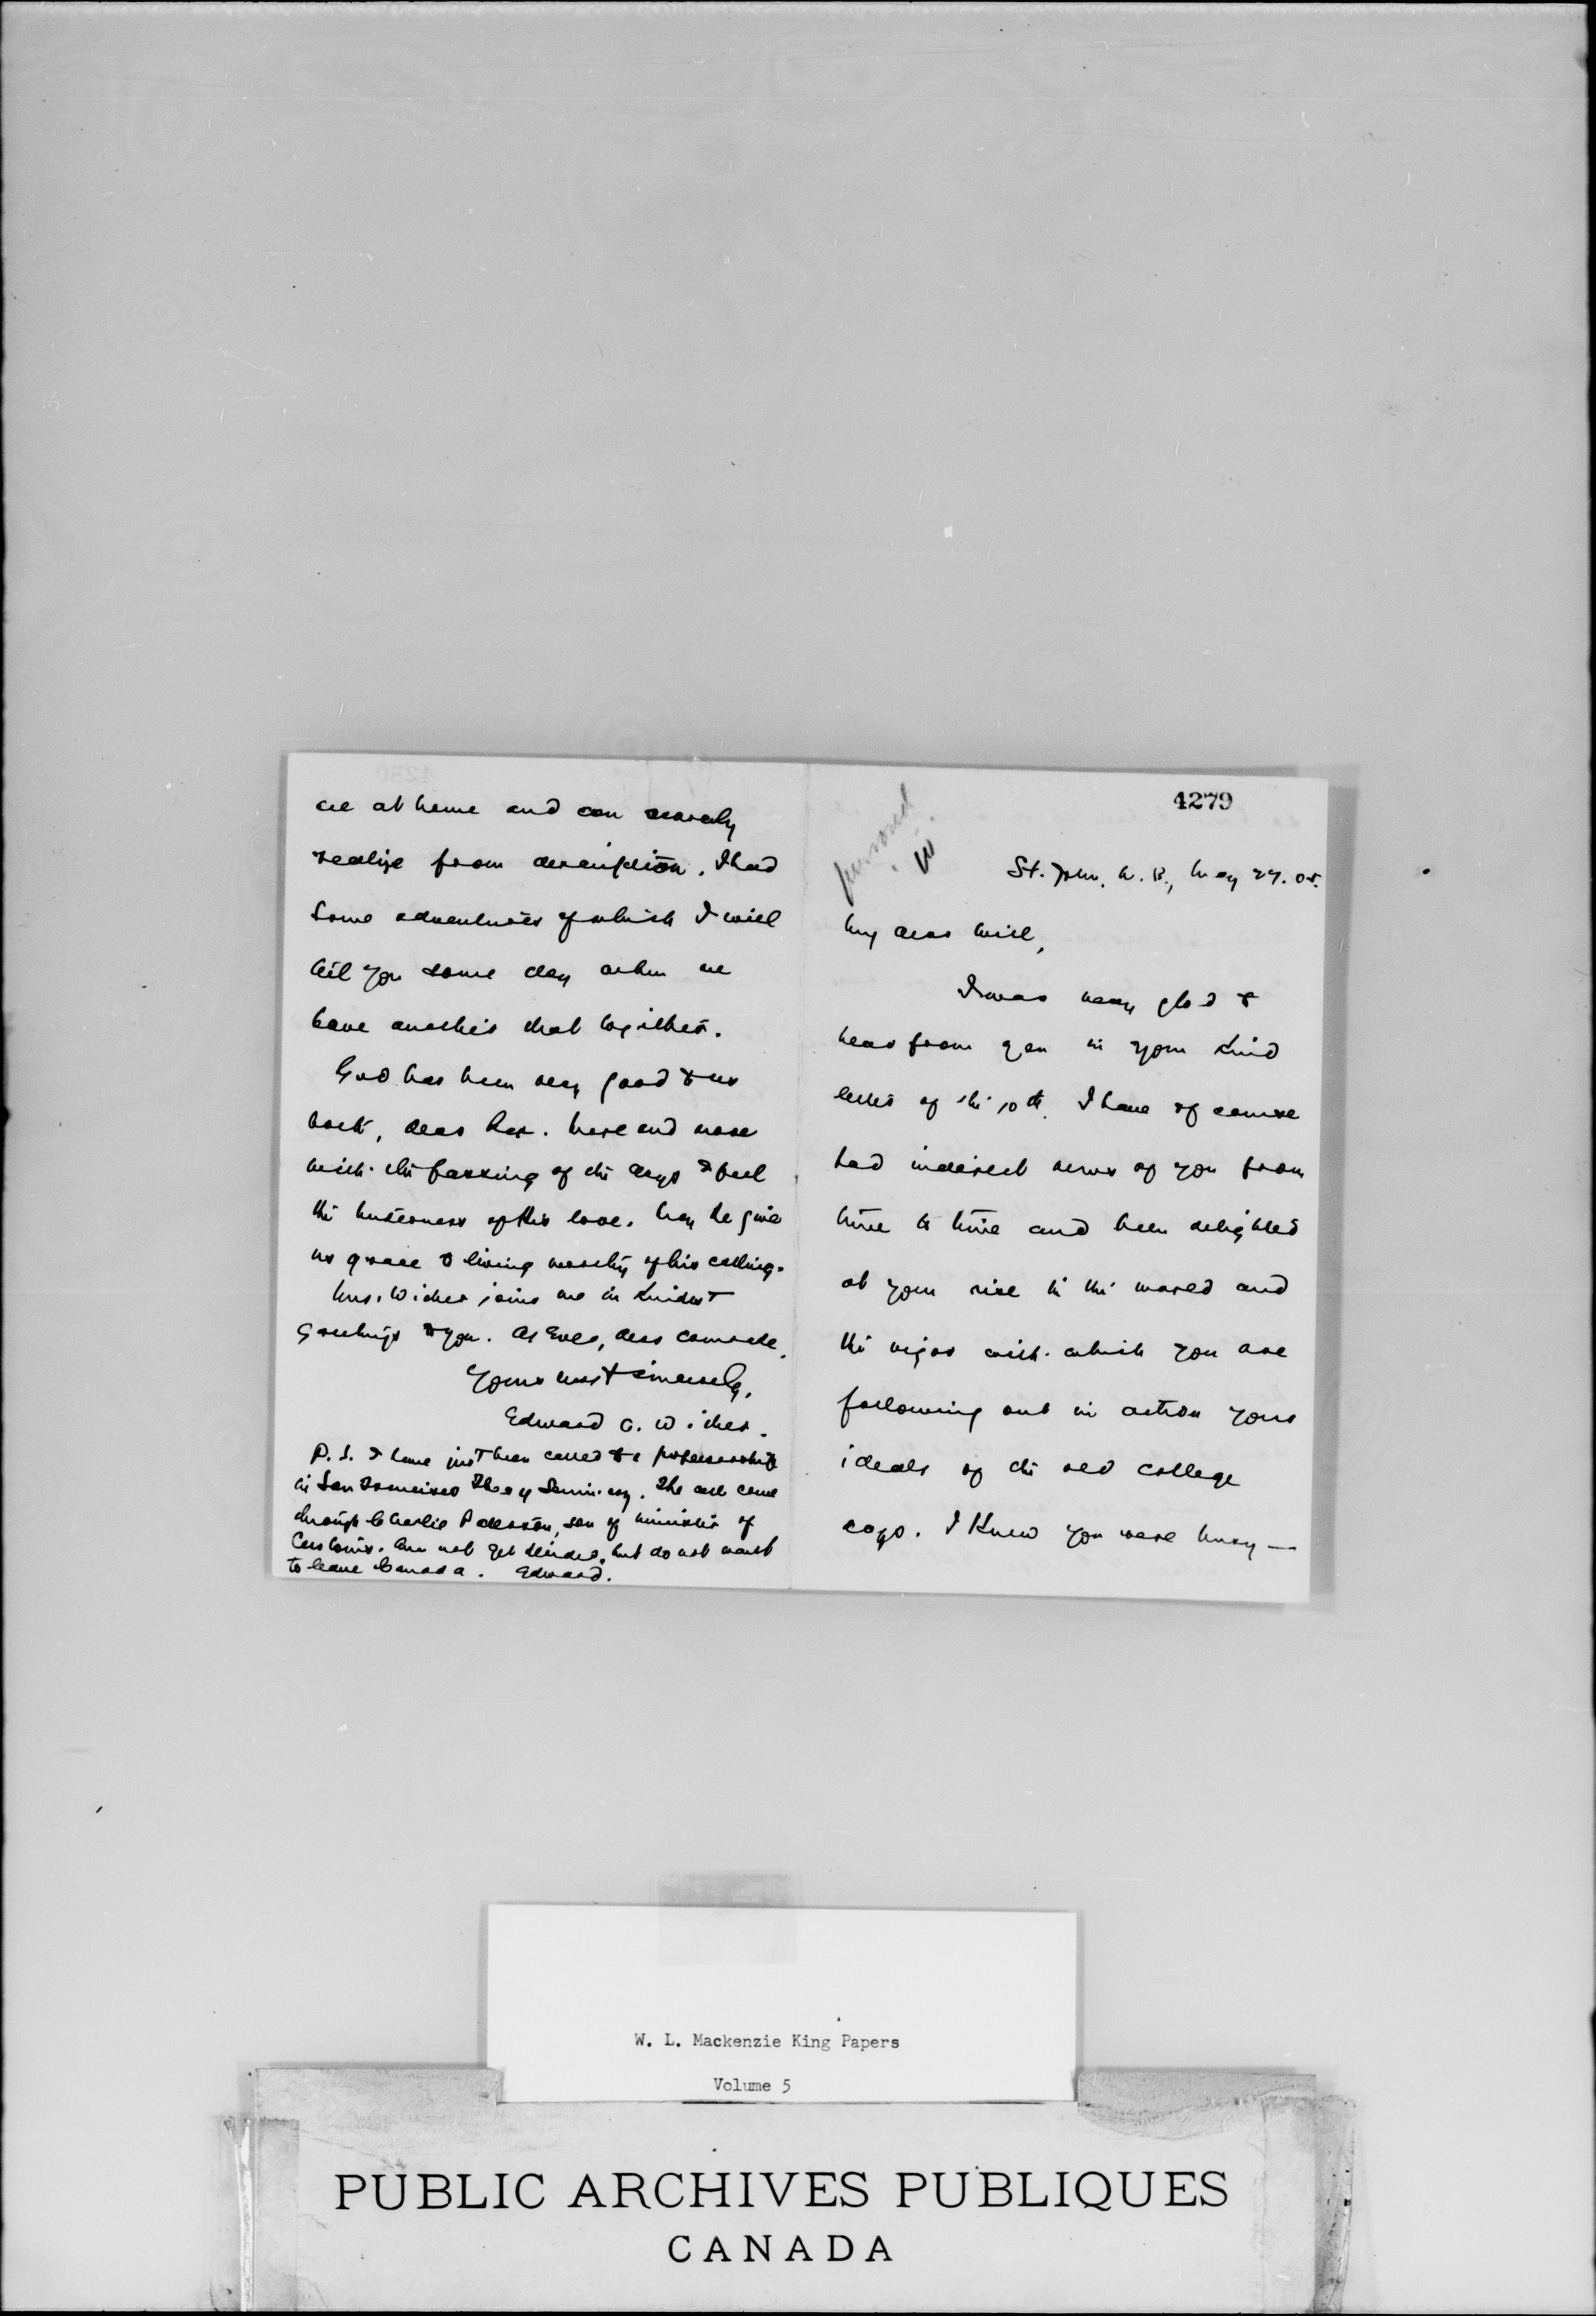 4279
personal.
St. John, N. B., May 27. 05.
My dear Will,
I was very glad to
hear from you in your kind
letter of the 10th. I have of course
had indirect news of you from
time to time and been delighted
at your rise in the world and
the vigor with which you are
following out in action your
ideals of the old college
days. I knew you were busy —
we at home and can scarcely
realize from description. I had
some adventures of which I will
tell you some day when we
have another chat together.
God has been very good to us
both, dear Rex. More and more
with the passing of the days I feel
the tenderness of His love. May He give
us grace to living worthy of his calling.
Mrs. Wicher joins me in kindest
greetings to you. As ever, dear comrade,
Yours most sincerely,
Edward A. Wicher.
P. S. I have just been called to a professorship
in San Francisco Theo'l Seminary. The call came
through Charlie Paterson, son of minister of
Customs. Am not yet decided, but do not want
to leave Canada. Edward.
W. L. Mackenzie King Papers
Volume 5
PUBLIC ARCHIVES PUBLIQUES
CANADA